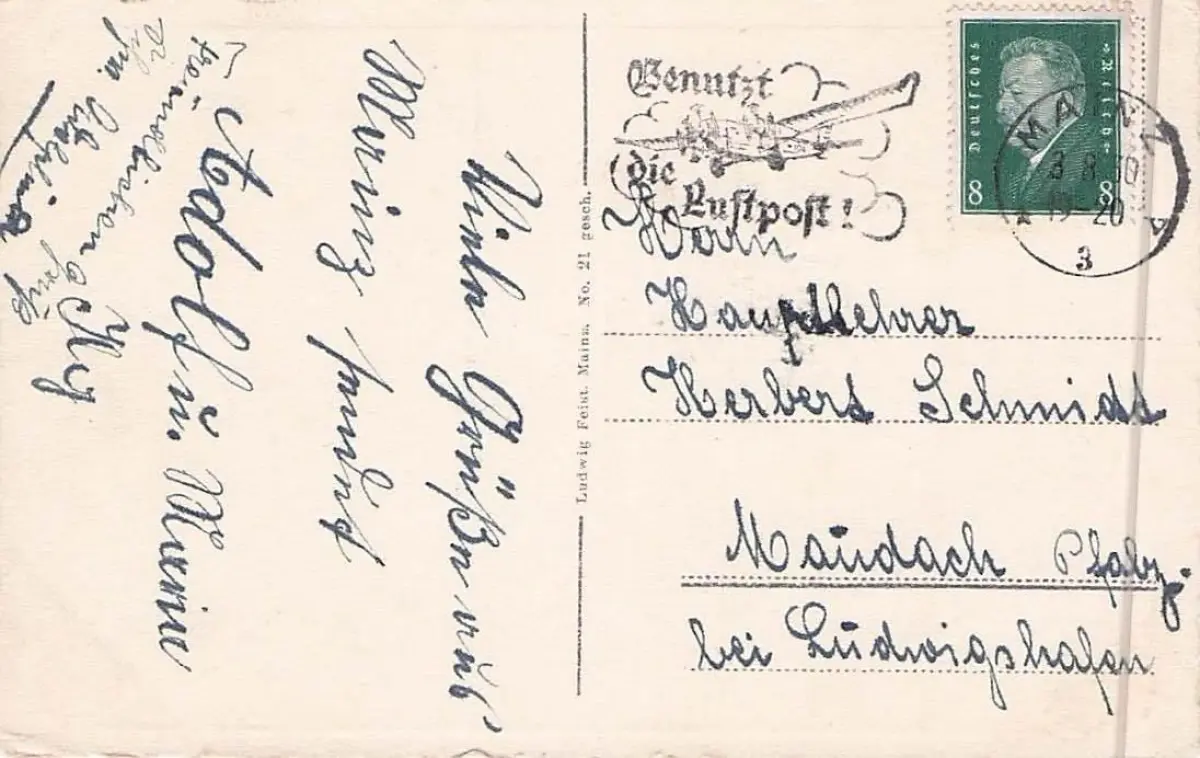 Viele Grüße aus
Mainz sendet
Adolf u. Marie
Benutzt
die
Luftpost!
Deutsches Reich
8 8
MAINZ
3
Ludwig Feist. Mainz. No. 21 gesch.
Herrn
Hauptlehrer
Herbert Schmidt
Maudach Pfalz.
bei Ludwigshafen